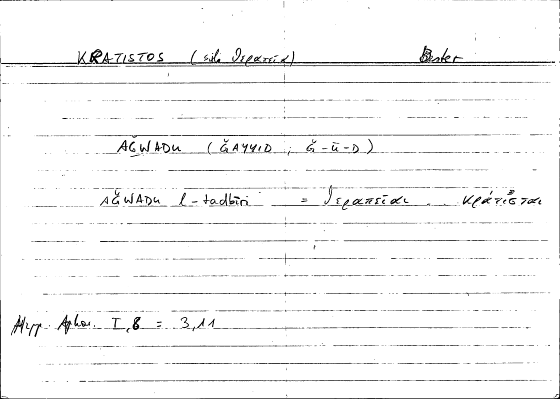 KRATISTOS (scil. θεραπεία) Bester
AĞWADU (ĞAYYID ; Ğ-W-D)
AĞWADU l-tadbīri = θεραπεῖαι κράτισται
Hipp. Aphor. I, 6 = 3,11